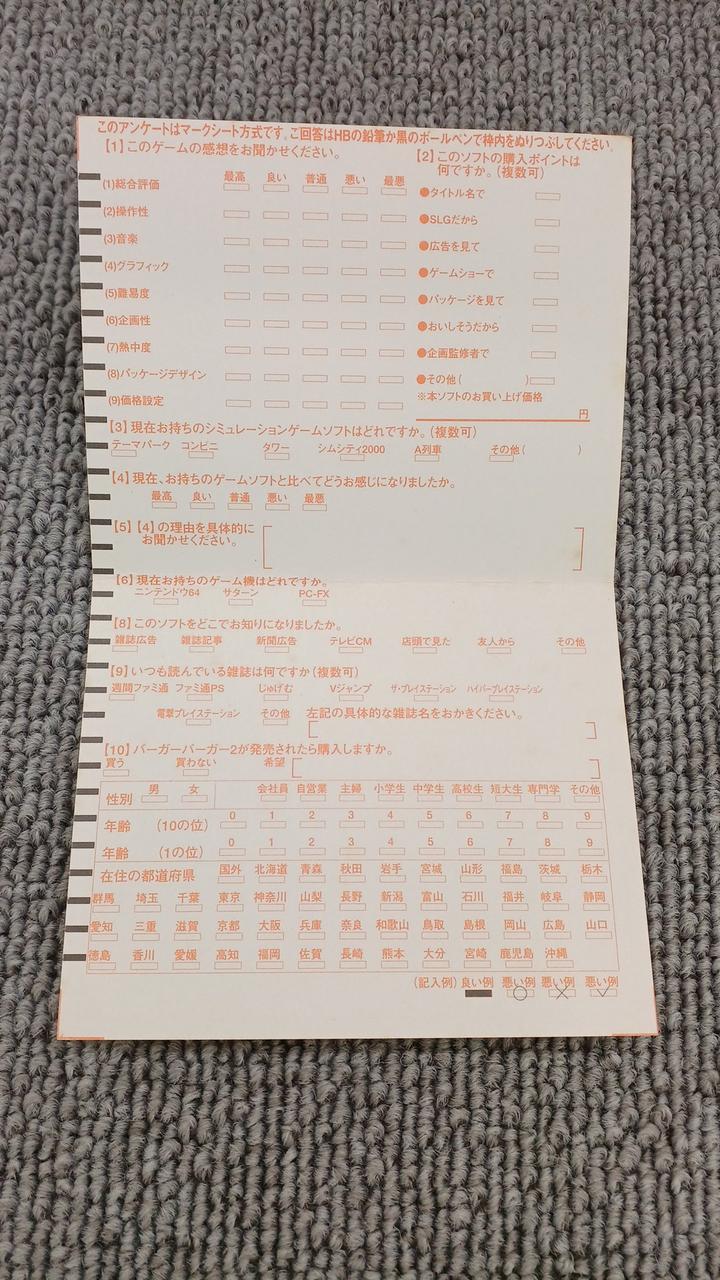 このアンケートはマークシート方式です。ご回答はHBの鉛筆か黒のボールペンで枠内をぬりつぶしてください。
【1】このゲームの感想をお聞かせください。
最高 良い 普通 悪い 最悪
(1)総合評価
(2)操作性
(3)音楽
(4)グラフィック
(5)難易度
(6)企画性
(7)熱中度
(8)パッケージデザイン
(9)価格設定
【2】このソフトの購入ポイントは
何ですか。(複数可)
●タイトル名で
●SLGだから
●広告を見て
●ゲームショーで
●パッケージを見て
●おいしそうだから
●企画監修者で
●その他( )
※本ソフトのお買い上げ価格
円
【3】現在お持ちのシミュレーションゲームソフトはどれですか。(複数可)
テーマパーク コンビニ タワー シムシティ2000 A列車 その他( )
【4】現在、お持ちのゲームソフトと比べてどうお感じになりましたか。
最高 良い 普通 悪い 最悪
【5】【4】の理由を具体的に
お聞かせください。
【6】現在お持ちのゲーム機はどれですか。
ニンテンドウ64 サターン PC-FX
【8】このソフトをどこでお知りになりましたか。
雑誌広告 雑誌記事 新聞広告 テレビCM 店頭で見た 友人から その他
【9】いつも読んでいる雑誌は何ですか(複数可)
週間ファミ通 ファミ通PS じゅげむ Vジャンプ ザ・プレイステーション ハイパープレイステーション
電撃プレイステーション その他 左記の具体的な雑誌名をおかきください。
【10】バーガーバーガー2が発売されたら購入しますか。
買う 買わない 希望
性別 男 女 会社員 自営業 主婦 小学生 中学生 高校生 短大生 専門学 その他
年齢 (10の位) 0 1 2 3 4 5 6 7 8 9
年齢 (1の位) 0 1 2 3 4 5 6 7 8 9
在住の都道府県 国外 北海道 青森 秋田 岩手 宮城 山形 福島 茨城 栃木
群馬 埼玉 千葉 東京 神奈川 山梨 長野 新潟 富山 石川 福井 岐阜 静岡
愛知 三重 滋賀 京都 大阪 兵庫 奈良 和歌山 鳥取 島根 岡山 広島 山口
徳島 香川 愛媛 高知 福岡 佐賀 長崎 熊本 大分 宮崎 鹿児島 沖縄
(記入例) 良い例 悪い例 悪い例 悪い例